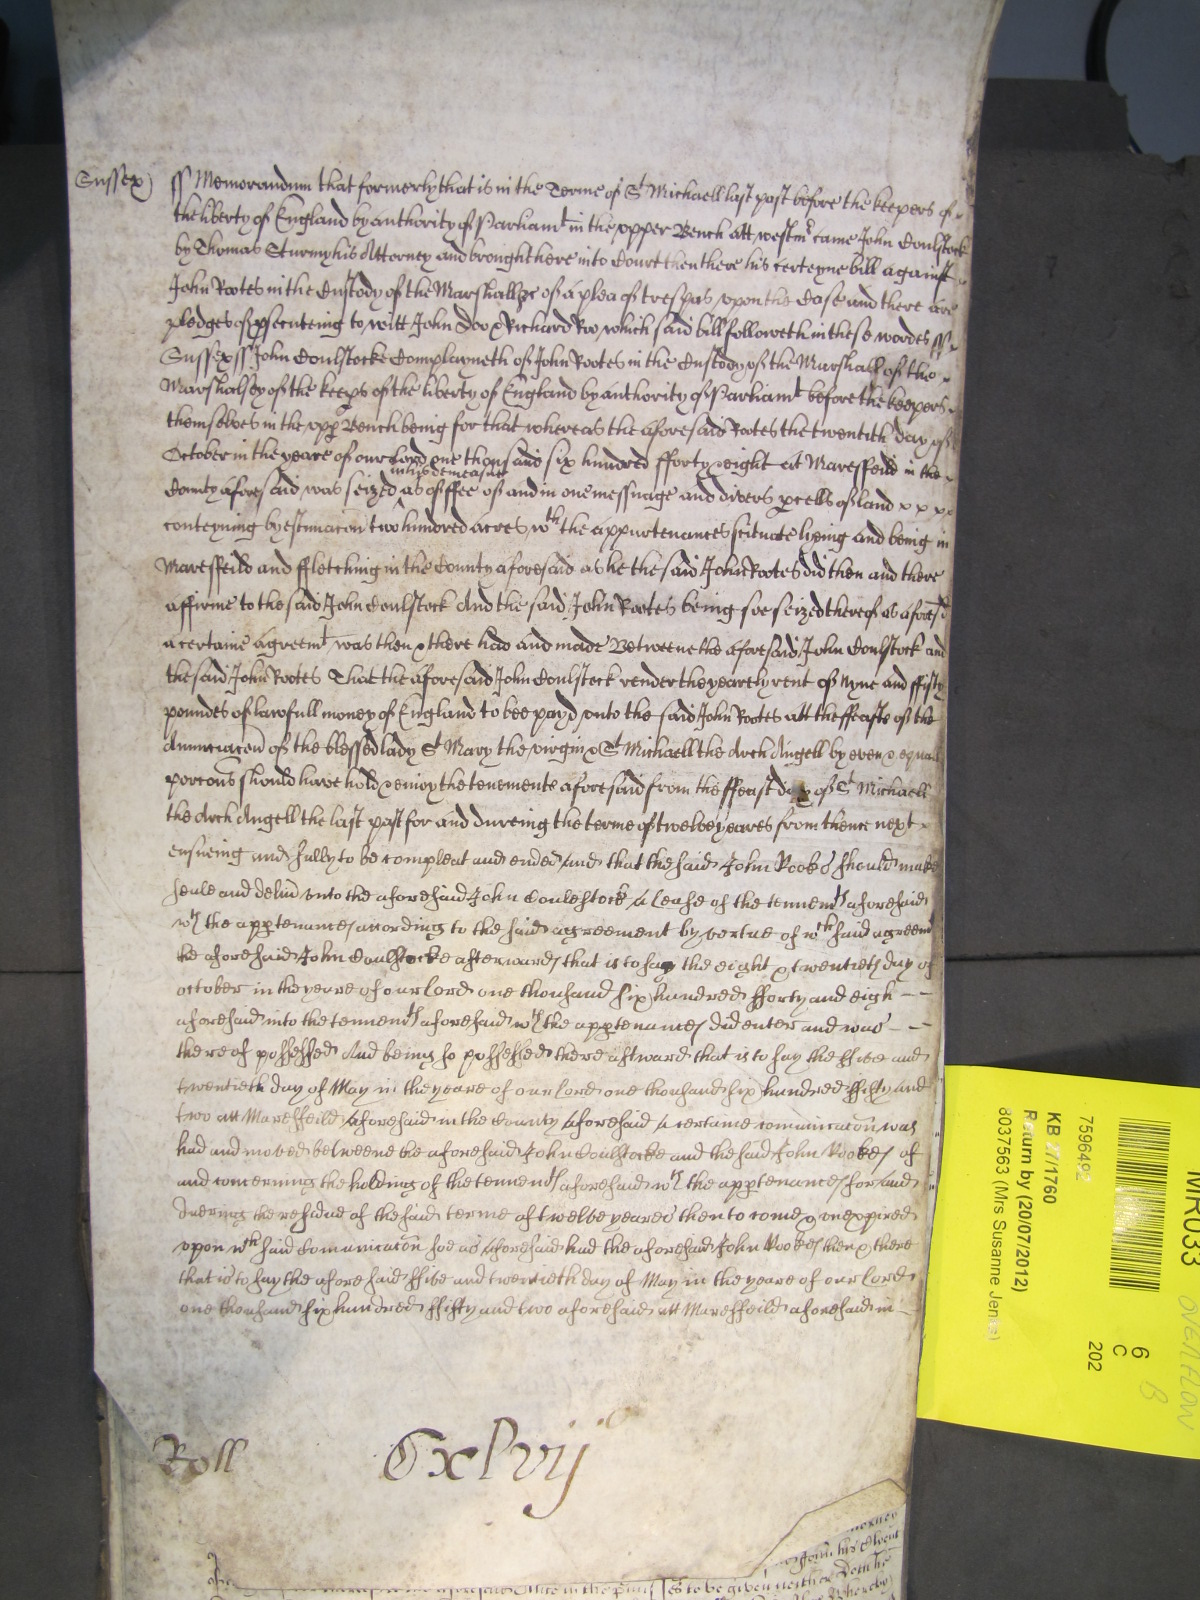 Sussex) ss Memorandum that formerly that is in the Terme of St Michaell last past before the keepers of
the liberty of England by authority of Parliamt in the upper Bench att westmr came John Coulstock
by Thomas Sturmy his Attorney and brought here into Court then there his certeyne bill against
John Rootes in the Custody of the Marshall &c of a plea of trespas upon the Case and there are
pledges of psecuteing to witt John Doo & Richard Roo, which said bill followeth in these wordes ss
Sussex ss John Coulstocke Complayneth of John Rootes in the Custody of the Marshall of the
Marshalsey of the keeps of the liberty of England by authority of Parliamt before the keepers
themselves in the upp Bench being for that whereas the aforesaid Rootes the twentith day of
October in the yeare of our Lord one thousand six hundred fforty & eight at Maresfeild in the
in his demeasne
County aforesaid was seized as of ffee of and in one messuage and divers pcells of land x x x x
conteyning by estimacon two hundred acres, wth the appurtenances scituate lyeing and being in
Maresfeild and ffletching in the County aforesaid as he the said John Rootes did then and there
affirme to the said John Coulstock And the said John Rootes being soe seized thereof as aforesd
a certaine agreemt was then & there had and made Betweene the aforesaid John Coulstock and
the said John Rootes That the aforesaid John Coulstock render the yearely rent of Nyne and ffifty
poundes of lawfull money of England to bee payd unto the said John Rootes att the ffeasts of the
Annunciacon of the blessed lady St Mary the virgin & St Michaell the Arch Angell by even & equall
porcons should have hold & enioy the tenements aforesaid from the ffeast day of St Michaell
the Arch Angell the last past for and dureing the terme of twelve yeares from thence next
ensueing and fully to be compleat and ended And that the said John Rootes should make
seale and deliv unto the aforesaid John Coulestock a Lease of the tennemts aforesaid
wth the apptenances according to the said agreement by vertue of wch said agreemt
he aforesaid John Coulstocke afterwards that is to say the eight & twentieth day of
october in the yeare of our Lord one thousand six hundred fforty and eigh — —
aforesaid into the tennemts aforesaid wth the apptenances did enter and was — —
thereof possessed And being so possessed there aftward that is to say the ffive and
twentieth day of May in the yeare of our Lord one thousand six hundred ffifty and
two att Maresfeild aforesaid in the County aforesaid a certaine comunicacon was
had and moved betweene the aforesaid John Coulstocke and the said John Rootes of
and concerning the holding of the tennemts aforesaid wth the apptenances for and
dureing the residue of the said terme of twelve yeares then to come & unexpired
upon wch said Comunicacon soe as aforesaid had the aforesaid John Rootes then & there
that is to say the afore said ffive and twentieth day of May in the yeare of our Lord
one thousand six hundred ffifty and two aforesaid att Maresfeild aforesaid in
Roll Cxlvij
MR033
OVERFLOW
B
6
C
202
KB 27/1760
Return by (20/07/2012)